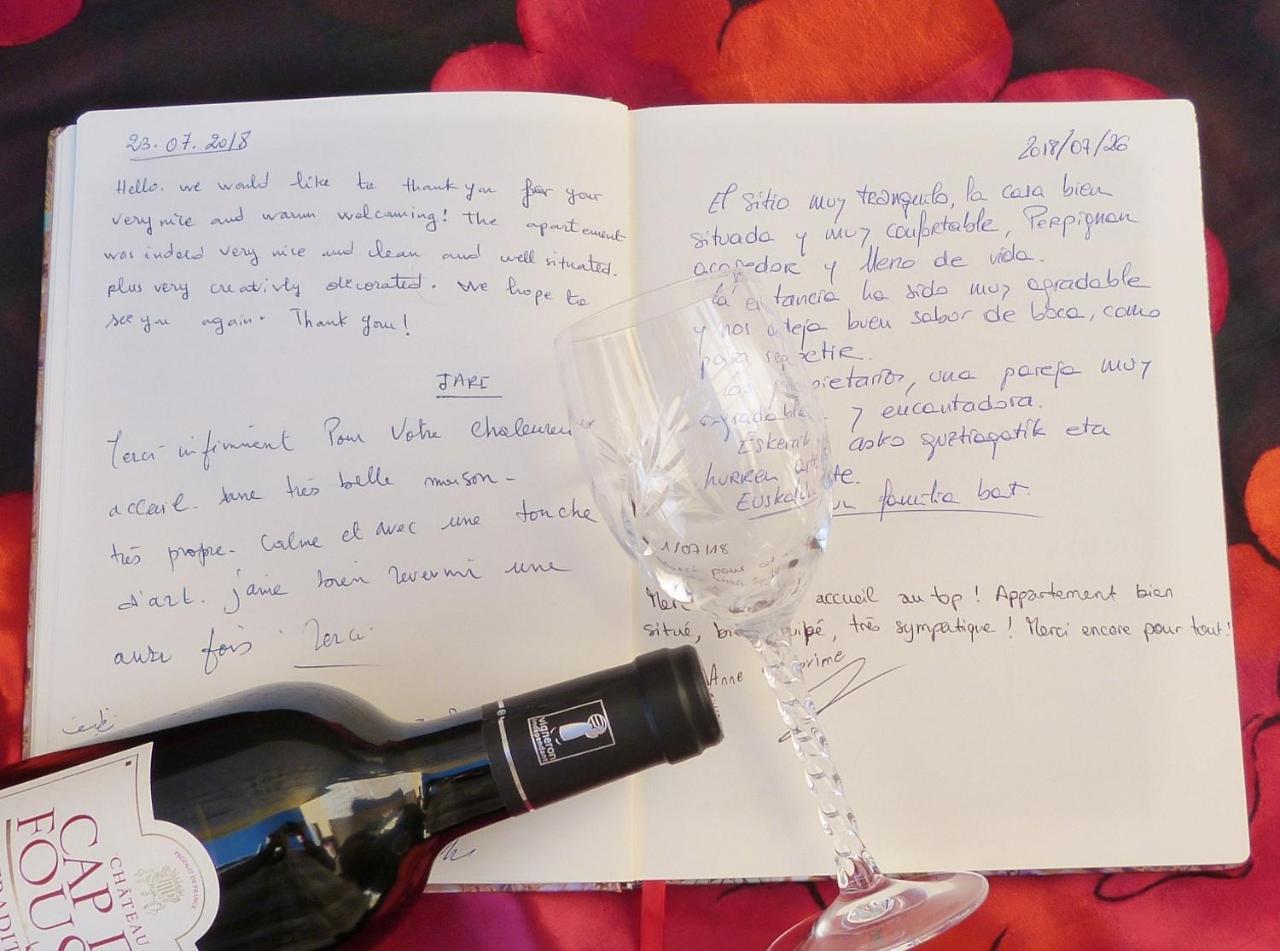 23.07.2018
Hello. we would like to thank you for your
very nice and warm welcoming! the apartement
was indeed very nice and clean and well situated.
plus very creativly decorated. We hope to
see you again. Thank you!
JARI
Merci infiniment Pour Votre chaleureux
accueil. une très belle maison -
très propre - Calme et avec une touche
d'art. j'aime bien revenir une
autre fois. Merci
2018/07/26
El sitio muy tranquilo, la casa bien
situada y muy confortable, Perpignan
acogedor y lleno de vida.
la estancia ha sido muy agradable
y nos deja buen sabor de boca, como
para repetir.
una pareja muy
agradable y encantadora.
Eskerrik asko guztiagatik eta
hurren arte.
familia bat.
1/07/18
pour
Merci accueil au top! Appartement bien
situé, équipé, très sympatique! Merci encore pour tout!
Anne
vigneron
indépendant
CHÂTEAU
CAP
FOUS
PRODUCE OF FRANCE